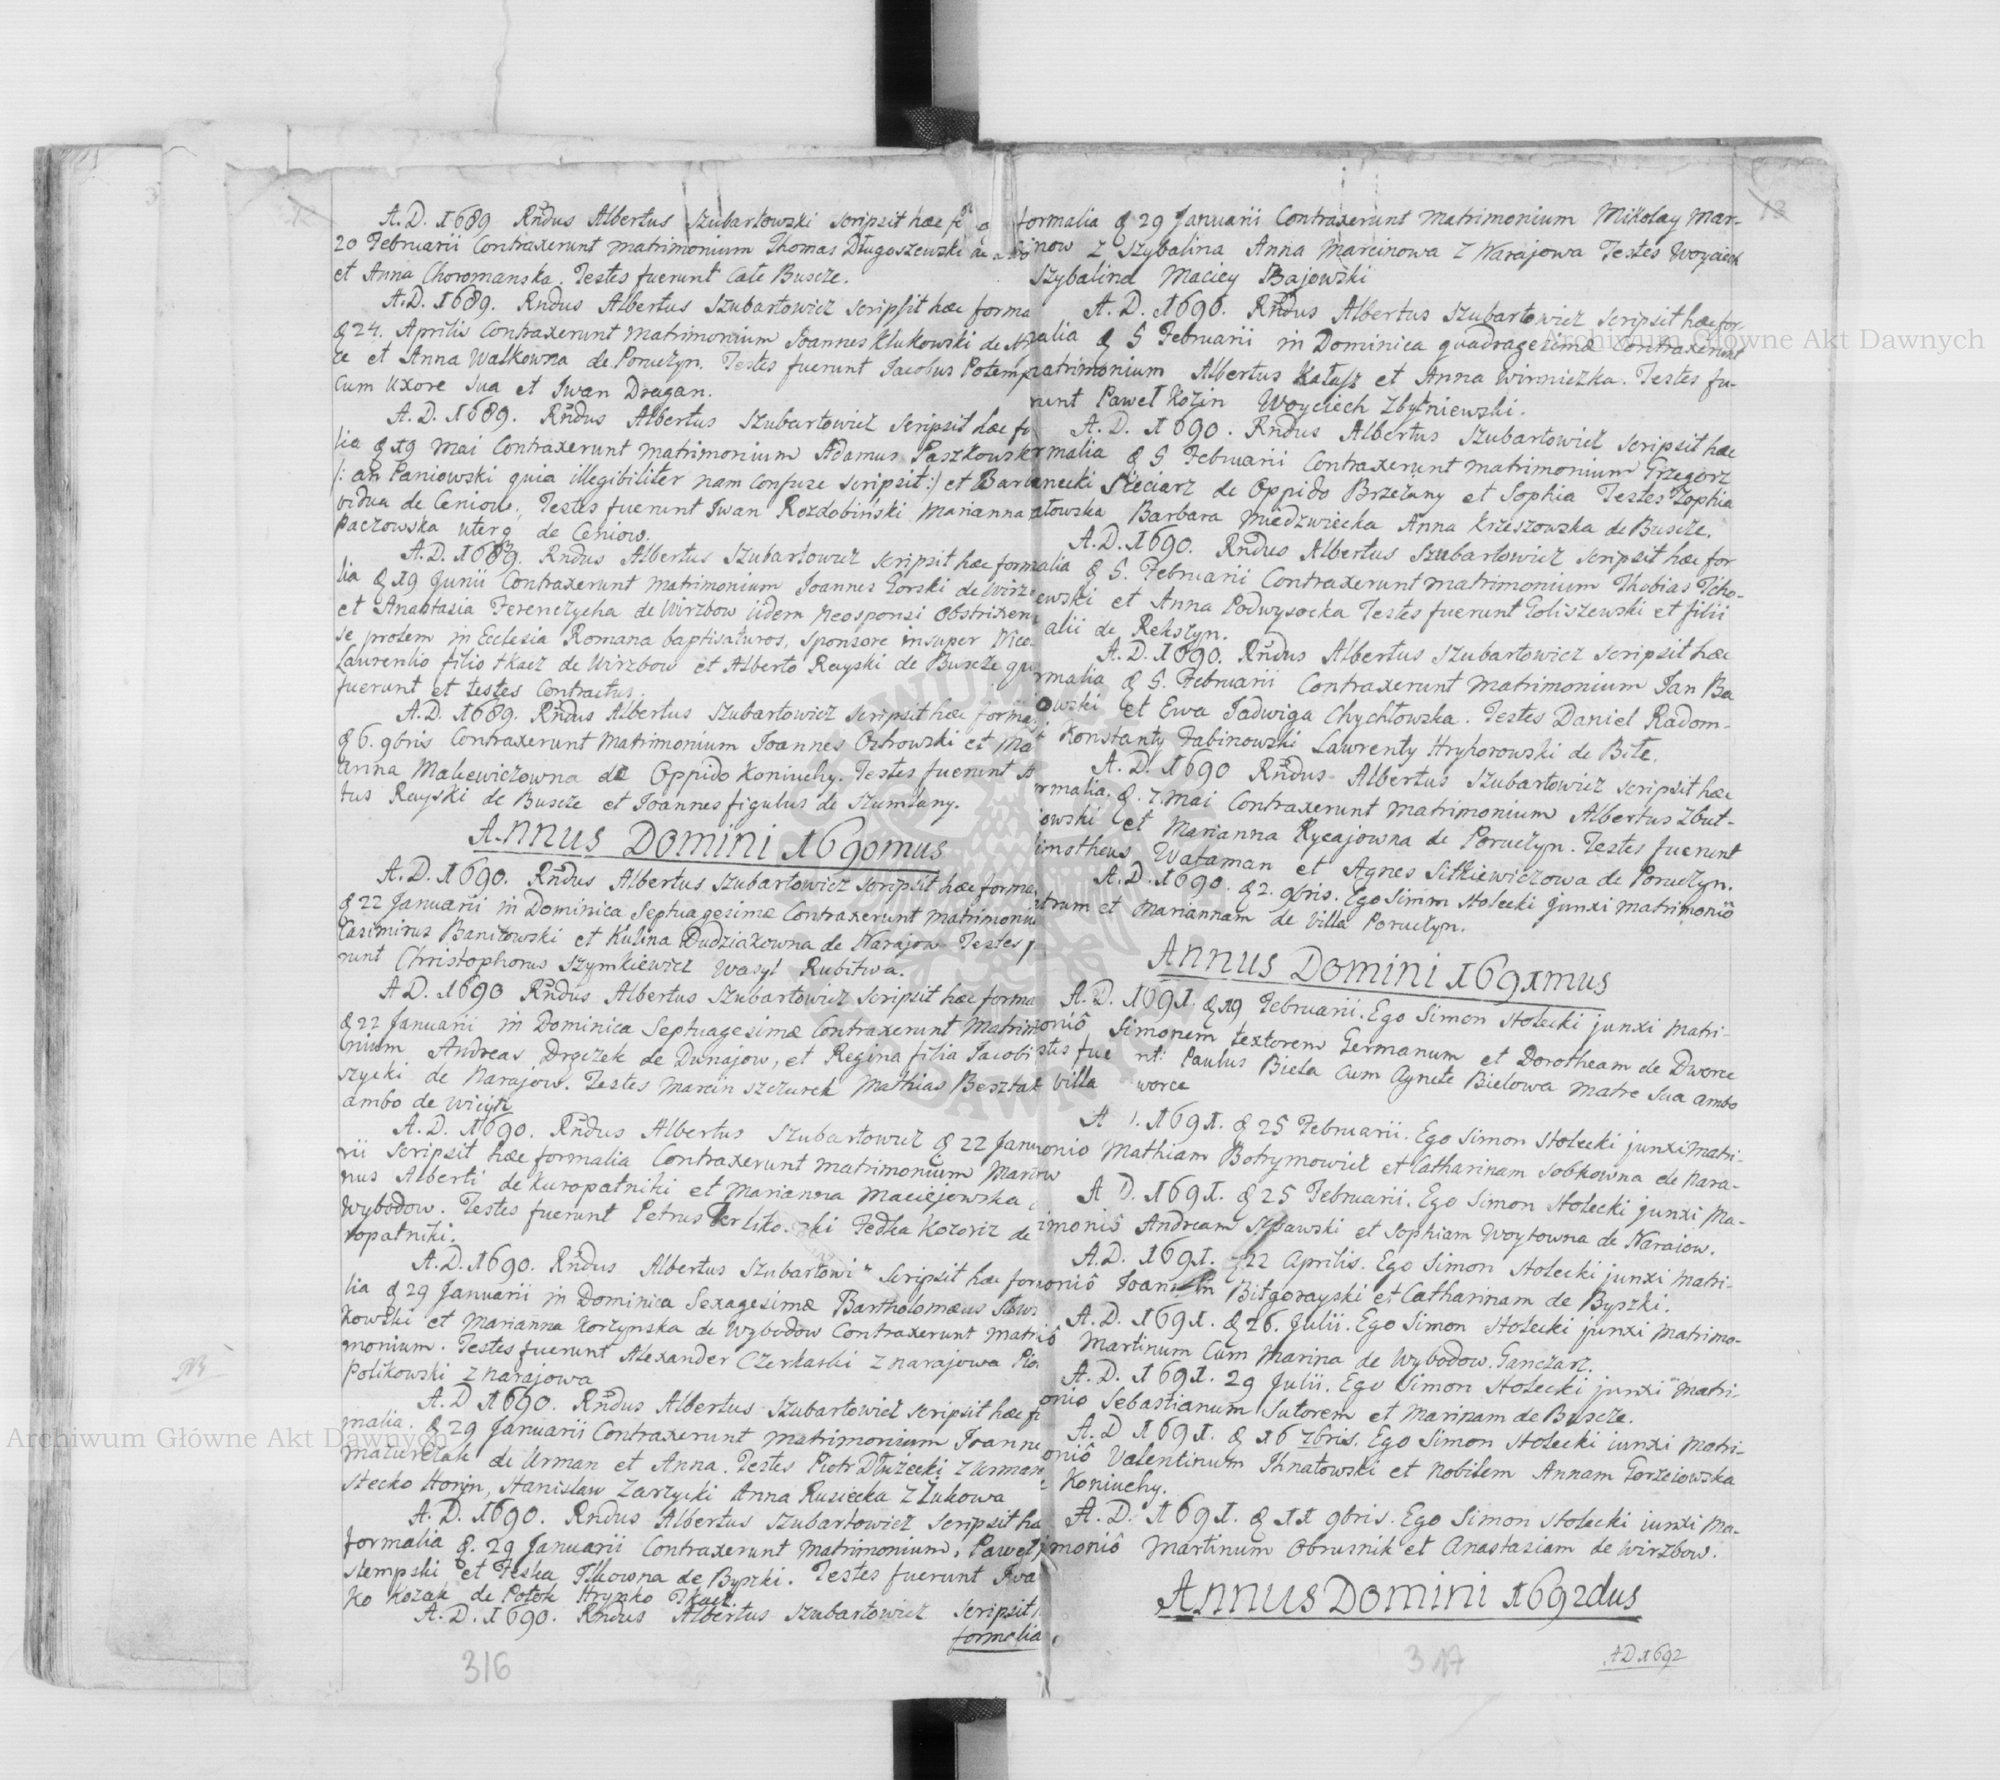 A.D. 1689 Rndus Albertus Szubartowski scripsit hæc
20 Februarii Contraxerunt matrimonium Thomas Długoszewski
et Anna Choromanska. Testes fuerunt Całe Buszcze.
A.D. 1689. Rndus Albertus Szubartowicz scripsit hæc forma
& 24. Aprilis Contraxerunt Matrimonium Joannes Klukowski de
et Anna Walkowna de Poruczyn. Testes fuerunt Jacobus Potemp
Cum Uxore sua et Iwan Dragan.
A.D. 1689. Rndus Albertus Szubartowicz scripsit hæc fo
lia & 19 Mai Contraxerunt matrimonium Adamus Paszkowsk
/: an Paniowski quia illegibiliter nam Confuse scripsit :/ et Bar
vidua de Ceniow. Testes fuerunt Iwan Rozdobiński Marianna
Paczowska uterq de Ceniow.
A.D. 1689. Rndus Albertus Szubartowicz scripsit hæc forma
lia & 19 Junii Contraxerunt Matrimonium Joannes Gorski de Wirz
et Anastasia Ferenczycha de Wirzbow iidem Neosponsi Obstrixeru
se prolem in Ecclesia Romana baptisaturos, sponsore insuper Nico
Laurentio filio tkacz de Wirzbow et Alberto Rayski de Buszcze qu
fuerunt et testes Contractus.
A.D. 1689. Rndus Albertus Szubartowicz scripsit hæc forma
& 6. 9bris Contraxerunt Matrimonium Joannes Ostrowski et Ma
Anna Malewiczowna de Oppido Koniuchy. Testes fuerunt A
tus Rayski de Buszcze et Joannes figulus de Szumlany.
Annus Domini 1690mus
A.D. 1690. Rndus Albertus Szubartowicz scripsit hæc forma
& 22 Januarii in Dominica Septuagesimæ Contraxerunt matrimoniu
Casimirus Baniłowski et Kulina Dudziakowna de Narajow Testes
runt Christophorus Szymkiewicz Wasyl Rubitwa.
A D. 1690 Rndus Albertus Szubartowicz scripsit hæc forma
& 22 Januarii in Dominica Septuagesimæ Contraxerunt Matrim
nium Andreas Drączek de Dunajow, et Regina filia Jacobi
szycki de Narajow. Testes Marcin Szczurek Mathias Besztak
ambo de Wicyn
A. D. 1690. Rndus Albertus Szubartowicz & 22 Janua
rii scripsit hæc formalia Contraxerunt matrimonium Marti
nus Alberti de Kuropatniki et Marianna Maciejowska
Wybodow. Testes fuerunt Petrus Fedka Kozoriz de
ropatniki.
A.D. 1690. Rndus Albertus Szubartowi scripsit hæc for
lia & 29 Januarii in Dominica Sexagesimæ Bartholomæus
kowski et Marianna Korzynska de Wybodow Contraxerunt matri
monium. Testes fuerunt Alexander Czerkaski z Narajowa
Polikowski z Narajowa
A. D 1690. Rndus Albertus Szubartowicz scripsit hæc f
malia. & 29 Januarii Contraxerunt matrimonium Joanne
Mazureczak de Urman et Anna. Testes Piotr Dłużecki z Urman
Stecko Horyn, Stanisław Zarzycki Anna Rusiecka z Łukowa
A. D. 1690. Rndus Albertus Szubartowicz scripsit ha
formalia & 29 Januarii Contraxerunt Matrimonium, Paweł
stempski et Feska Tkowna de Byszki. Testes fuerunt Iwa
ko Kozak de Potok Hrynko Tkacz
A. D. 1690. Rndus Albertus Szubartowicz scripsit
formalia
316
13
formalia & 29 Januarii Contraxerunt matrimonium Mikołay Mar-
z Szybalina Anna Marcinowa z Narajowa Testes Woyciech
Szybalina Maciey Bajowski
A. D. 1690. Rndus Albertus Szubartowicz scripsit hæc for-
malia & 5 Februarii in Dominica quadragesimæ Contraxerunt
matrimonium Albertus Kałasz et Anna Winniczka. Testes fu-
runt Paweł Kozin Woyciech Zbytniewski.
A. D. 1690. Rndus Albertus Szubartowicz scripsit hæc
rmalia & 5 Februarii Contraxerunt matrimonium Grzegorz
necki Stéciarz de Oppido Brzeżany et Sophia Testes Zophia
atowska Barbara Miedzwiecka Anna Krzeszowska de Buszcze.
A. D. 1690. Rndus Albertus Szubartowicz scripsit hæc for
alia & 5. Februarii Contraxerunt matrimonium Thobias Tcho-
ewski et Anna Podwysocka Testes fuerunt Goliszewski et filii
alii de Rekszyn.
A. D. 1690. Rndus Albertus Szubartowicz scripsit hæc
rmalia & 5. Februarii Contraxerunt Matrimonium Jan Ba
owski et Ewa Jadwiga Chychłowska. Testes Daniel Radom-
Konstanty Fabinowski Lawrenty Hryhorowski de Biłe.
A. D. 1690 Rndus Albertus Szubartowicz scripsit hæc
rmalia. & 7. Mai Contraxerunt matrimonium Albertus Zbut-
iowski et Marianna Rycajowna de Poruczyn. Testes fuerunt
imotheus Wataman et Agnes Sitkiewiczowa de Poruczyn.
A. D. 1690. & 2. 9bris. Ego Simon Stołecki junxi matrimoniô
trum et Mariannam de Villa Poruczyn.
Annus Domini 1691mus
A. D. 1691. & 19 Februarii. Ego Simon Stołecki junxi Matri-
moniô Simonem textorem Germanum et Dorotheam de Dworce
stes fue nt: Paulus Biela Cum Agnete Bielowa Matre sua ambo
Villa worce
A . 1691. & 25 Februarii. Ego Simon Stołecki junxi Matri-
onio Mathiam Botrymowicz et Catharinam Sobkowna de Nara-
ow
A D. 1691. & 25 Februarii. Ego Simon Stołecki junxi Ma-
imoniô Andream et Sophiam Woytowna de Narajow.
A.D. 1691. & 22 Aprilis. Ego Simon Stołecki junxi Matri-
oniô Joan Biłgorayski et Catharinam de Byszki.
A. D. 1691. & 26. Julii. Ego Simon Stołecki junxi Matrimo-
ô Martinum Cum Marina de Wybodow. Ganczarz.
A. D. 1691. 29 Julii. Ego Simon Stołecki junxi Matri-
onio Sebastianum Sutorem et Marinam de Buszcze.
A. D 1691. & 16 7bris. Ego Simon Stołecki iunxi Matri-
oniô Valentinum Ihnatowski et Nobilem Annam Gorzciowska
Koniuchy.
A. D. 1691. & 11 9bris. Ego Simon Stołecki iunxi Ma-
imoniô Martinum Obrusnik et Anastasiam de Wirzbow.
Annus Domini 1692dus
317
AD 1692
Archiwum Główne Akt Dawnych
Archiwum Główne Akt Dawnych